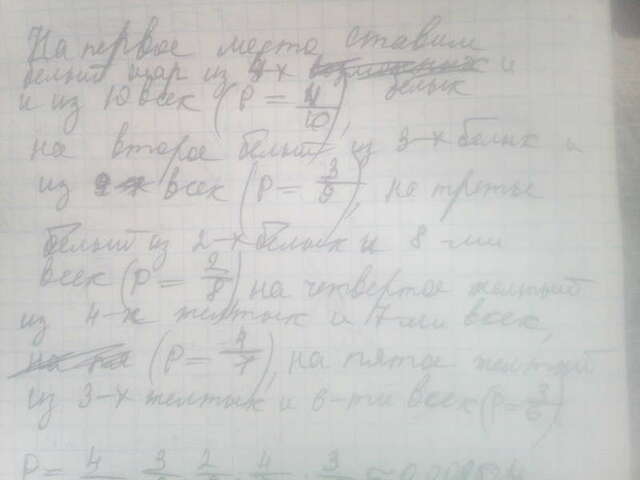 На первое место ставим
белый шар из 4-х белых и
и из 10 всех (P = 4/10),
на второе белый из 3-х белых и
из 9 всех (P = 3/9), на третье
белый из 2-х белых и 8-ми
всех (P = 2/8) на четвертое желтый
из 4-х желтых и 7-ми всех,
(P = 4/7), на пятое желтый
из 3-х желтых и 6-ти всех (P = 3/6)
P = 4 3 2 4 3